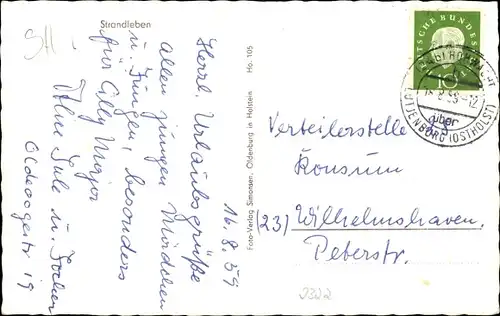 Strandleben
16.8.59
Herzl. Urlaubsgrüße
allen jungen Mädchen
u. Jungen, besonders
für Gilly Major
Ihre Jule u.
Oldeoogestr 19
Foto-Verlag Simonsen, Oldenburg in Holstein Ho. 105
DEUTSCHE BUNDESPOST
10
über
LÜTJENBURG (OSTHOLST)
Verteilerstelle
Konsum
(23) Wilhelmshaven
Peterstr.